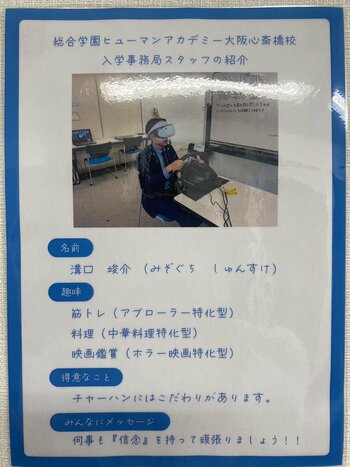 総合学園ヒューマンアカデミー大阪心斎橋校
入学事務局スタッフの紹介
名前
溝口 竣介 (みぞぐち しゅんすけ)
趣味
筋トレ(アブローラー特化型)
料理(中華料理特化型)
映画鑑賞(ホラー映画特化型)
得意なこと
チャーハンにはこだわりがあります。
みんなにメッセージ
何事も『信念』を持って頑張りましょう!!